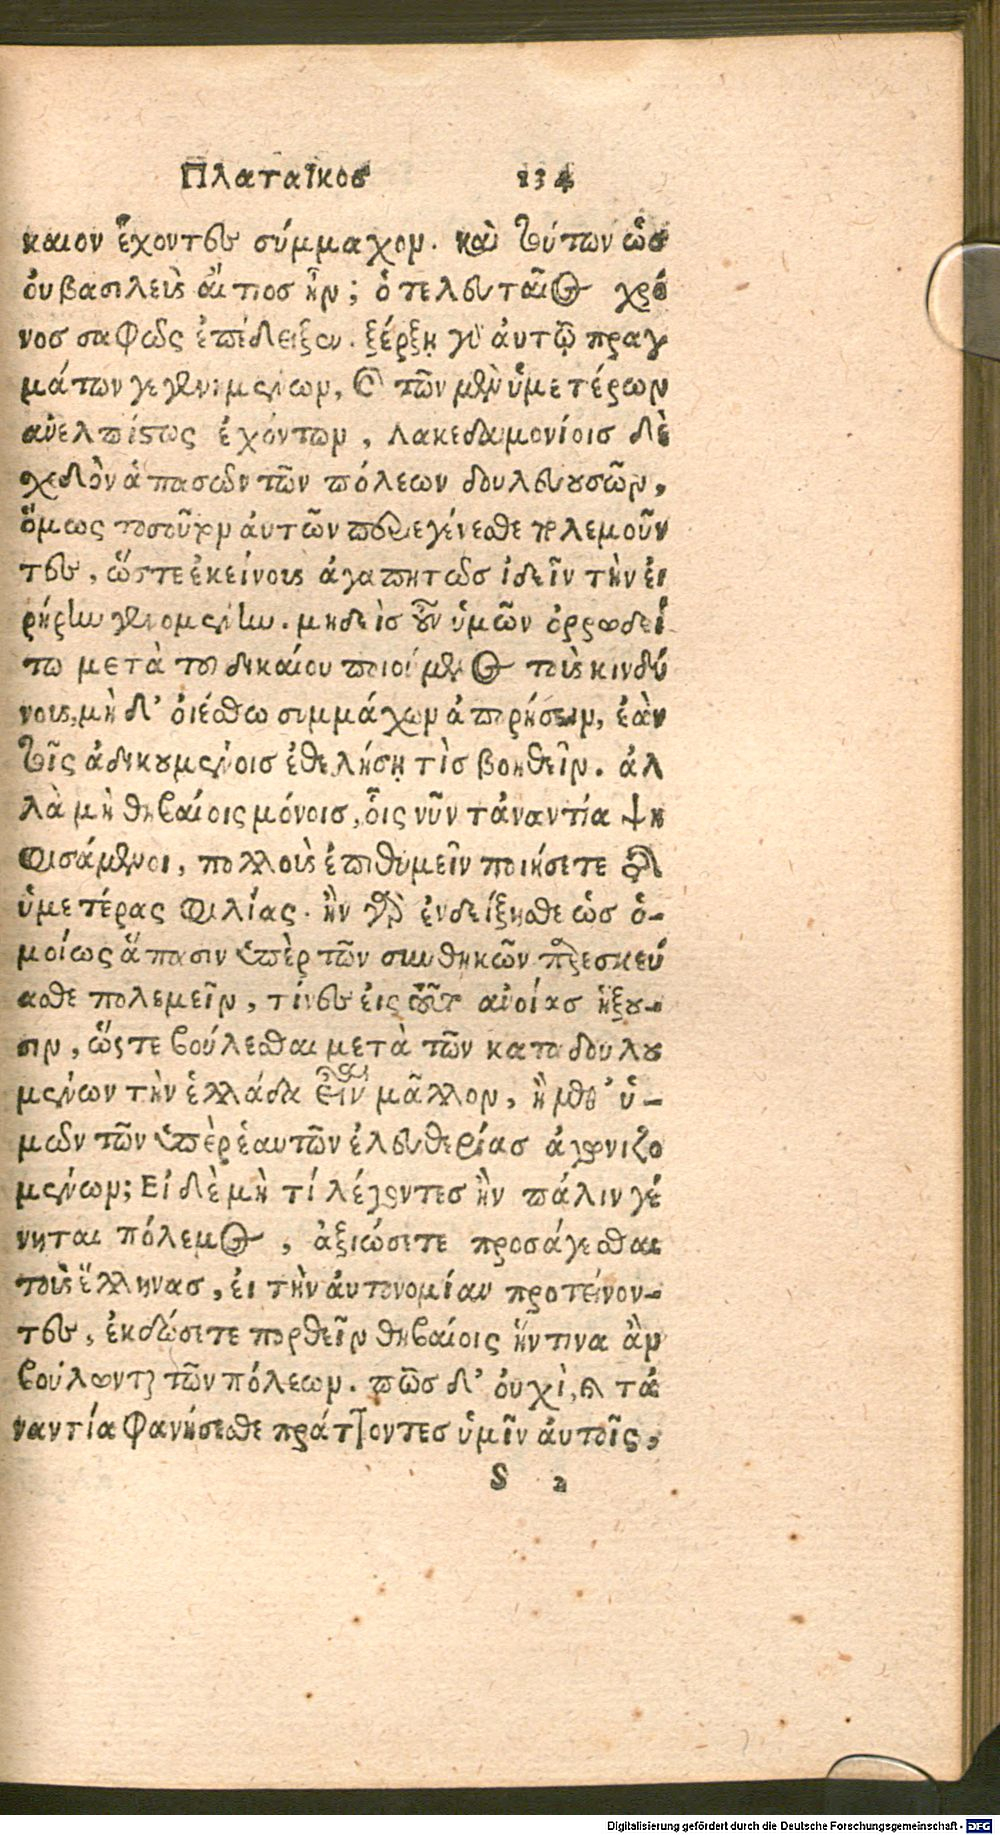 Πλαταϊκος 134
καιον ἔχοντες σύμμαχον. καὶ τούτων ὡς
ὀυ βασιλεὺς ἄιτιος ἦν; ὁ τελευταῖος χρό
νος σαφῶς ἐπέδειξεν. ξέρξῃ γὸ ἀυτῷ πραγ
μάτων γεγενημένων, καὶ τῶν μὲν ὑμετέρων
ἀνελπίστως ἐχόντων, Λακεδαιμονίοις δὲ
σχεδὸν ἁπασῶν τῶν πόλεων δουλευουσῶν,
ὅμως τοσοῦτον ἀυτῶν περιεγένεσθε πολεμοῦν
τες, ὥστε ἐκείνους ἀγαπητῶς ἰδεῖν τὴν ἐι
ρήνην γενομένην. μηδεὶς οὖν ὑμῶν ὀρρωδεί
τω μετὰ τοῦ δικαίου ποιούμενος τοὺς κινδύ
νους, μὴ δ' ὀιέσθω συμμάχων ἀπορήσειν, ἐὰν
τοῖς ἀδικουμένοις ἐθελήσῃ τὶς βοηθεῖν. ἀλ
λὰ μὴ θηβαίοις μόνοις, οἷς νῦν τἀναντία ψη
φισάμενοι, πολλοὺς ἐπιθυμεῖν ποιήσετε τῆς
ὑμετέρας φιλίας. ἢν γὰρ ἐνδείξησθε ὡς ὁ-
μοίως ἅπασιν ὑπὲρ τῶν συνθηκῶν παρεσκεύ
ασθε πολεμεῖν, τίνες ἐις τοῦτ' ἀνοίας ἥξου-
σιν, ὥςτε βούλεσθαι μετὰ τῶν καταδουλου
μένων τὴν ἑλλάδα εἶναι μᾶλλον, ἢ μεθ' ὑ-
μῶν τῶν ὑπὲρ ἑαυτῶν ἐλευθερίας ἀγωνιζο
μένων; Εἰ δὲ μὴ τί λέγοντες ἢν πάλιν γέ
νηται πόλεμος, ἀξιώσετε προσάγεσθαι
τοὺς ἕλληνας, ἐι τὴν ἀυτονομίαν προτείνον-
τες, ἐκδώσετε πορθεῖν θηβαίοις ἥντινα ἂν
βούλωνται τῶν πόλεων. πῶς δ' ὀυχὶ, καὶ τά
ναντία φανήσεσθε πράττοντες ὑμῖν ἀυτοῖς,
S 2
Digitalisierung gefördert durch die Deutsche Forschungsgemeinschaft - DFG